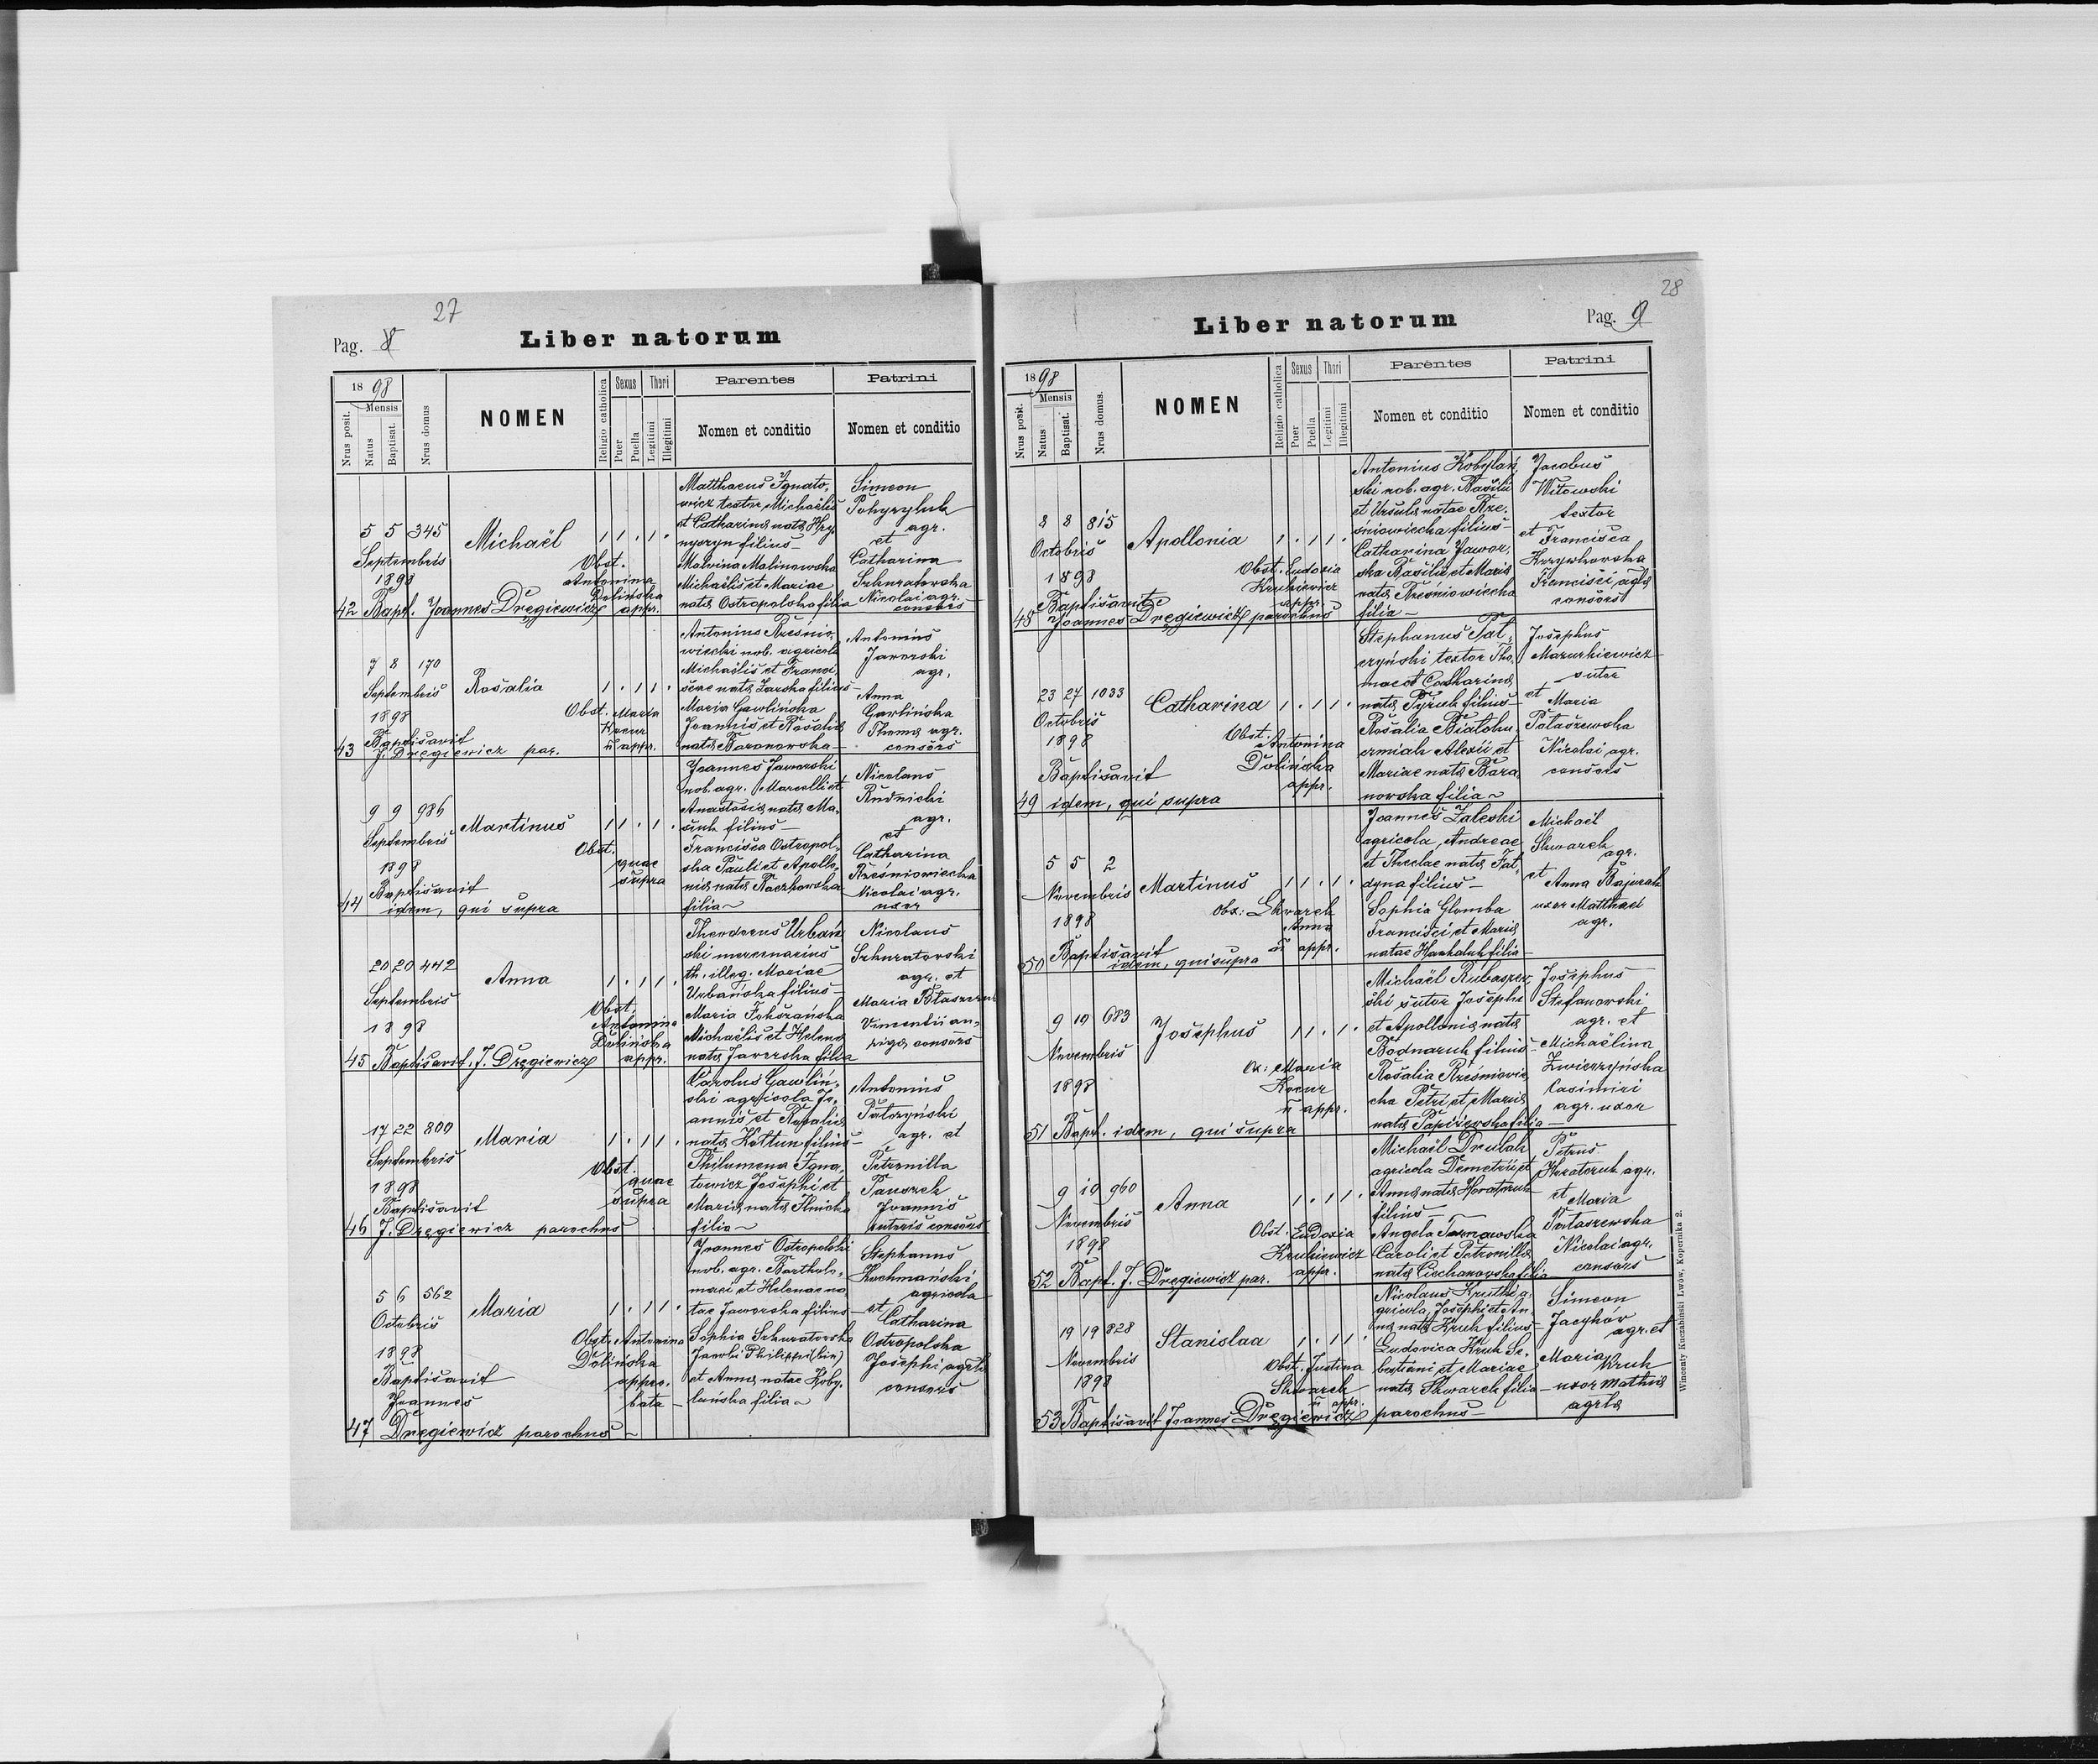 27
Pag. 8
Liber natorum
1898
Mensis
Nrus posit.
Natus
Baptisat.
Nrus domus
NOMEN
Religio catholica
Sexus
Puer
Puella
Thori
Legitimi
Illegitimi
Parentes
Nomen et conditio
Patrini
Nomen et conditio
5 5 345 Michaël 1 1 . 1 .
Septembris
1898
Obst.
Antonina
Dolińska
appr.
42 Bapt. Joannes Dręgiewicz
Matthaeus Ignato-
wicz textor Michaëlis
et Catharina nata Hry-
filius
Malvina Malinowska
Michaëlis et Mariae
nata Ostropolska filia
Simeon
agr.
et
Catharina
Szkuratowska
Nicolai agr.
consors
7 8 170 Rosalia 1 . 1 1 .
Septembris
1898
Obst. Maria
Kocur
appr.
Baptisavit
43 J. Dręgiewicz par.
Antonius Rześnio-
wiecki nob. agricola
Michaëlis et Franci-
scae nata Żarska filius
Maria Gawlińska
Joannis et Rosalia
nata Baranowska
Antonius
Jaworski
agr.
Anna
Gawlińska
Thoma agr.
consors
9 9 986 Martinus 1 1 . 1 .
Septembris
1898
Obst.
quae
supra
Baptisavit
44 idem, qui supra
Joannes Jaworski
nob. agr. Marcelli et
Anastasia nata Ma-
filius
Francisca Ostropol-
ska Pauli et Apollo-
nia nata Raczkowska
filia
Nicolaus
Rudnicki
agr.
et
Catharina
Rześniowiecka
Nicolai agr.
uxor
20 20 442 Anna 1 . 1 1 .
Septembris
1898
Obst.
Antonina
Dolińska
appr.
45 Baptisavit J. Dręgiewicz
Theodorus Urbań-
ski mercenarius
th. illeg. Mariae
Urbańska filius
Maria
Michaëlis et Helena
nata Jaworska filia
Nicolaus
Szkuratowski
agr. et
Maria
Vincentii
consors
17 22 800 Maria 1 . 1 1 .
Septembris
1898
Obst.
quae
supra
Baptisavit
46 J. Dręgiewicz parochus
Carolus Gawliń-
ski agricola Jo-
annis et Rosalia
nata Kottun filius
Philumena Igna-
towicz Josephi et
Maria nata Ilnicka
filia
Antonius
Patczyński
agr. et
Petronilla
Joannis
sutoris consors
5 6 562 Maria 1 . 1 1 .
Octobris
1898
Obst. Antonina
Dolińska
appro-
bata
Baptisavit
Joannes
47 Dręgiewicz parochus
Joannes Ostropolski
nob. agr. Bartholo-
maei et Helenae na-
tae Jaworska filius
Sophia Szkuratowska
Jacobi Philippi (bin)
et Anna natae Koby-
lańska filia
Stephanus
Kochmański
agricola
et
Catharina
Ostropolska
Josephi agrla
consors
28
Pag. 9
Liber natorum
1898
Mensis
Nrus posit.
Natus
Baptisat.
Nrus domus.
NOMEN
Religio catholica
Sexus
Puer
Puella
Thori
Legitimi
Illegitimi
Parentes
Nomen et conditio
Patrini
Nomen et conditio
8 8 815 Apollonia 1 . 1 1 .
Octobris
1898
Obst. Eudoxia
Krukiewicz
appr.
Baptisavit
48 Joannes Dręgiewicz parochus
Antonius Kobylań-
ski nob. agr. Basilii
et Ursula natae Rze-
śniowiecka filius
Catharina Jawor-
ska Basilii et Maria
nata Rześniowiecka
filia
Jacobus
Witowski
textor
et Francisca
Krzywkowska
Francisci agla
consors
23 27 1033 Catharina 1 . 1 1 .
Octobris
1898
Obst.
Antonina
Dolińska
appr.
Baptisavit
49 idem, qui supra
Stephanus Pat-
czyński textor Tho-
mae et Catharina
nata Pyruk filius
Rosalia Białohu-
Alexii et
Mariae nata Bara-
nowska filia
Josephus
Mazurkiewicz
sutor
et Maria
Pataszewska
Nicolai agr.
consors
5 5 2 Martinus 1 1 . 1 .
Novembris
1898
Obs: Skwarek
Anna
appr.
Baptisavit
50 idem, qui supra
Joannes Zaleski
agricola, Andreae
et Theclae nata Fat-
dyna filius
Sophia Glomba
Francisci et Maria
natae filia
Michaël
Skwarek
agr.
et
Anna Bajurak
uxor Matthaei
agr.
9 10 683 Josephus 1 1 . 1 .
Novembris
1898
Ob: Maria
Kocur
appr.
51 Bapt. idem, qui supra
Michaël Rubaszew-
ski sutor Josephi
et Apollonia nata
Bodnaruk filius
Rosalia Rześniowie-
cka Petri et Maria
nata filia
Josephus
Stefanowski
agr. et
Michaëlina
Zwierzyńska
Casimiri
agr. uxor
9 10 960 Anna 1 . 1 1 .
Novembris
1898
Obst. Eudoxia
Krukiewicz
appr.
52 Bapt. J. Dręgiewicz par.
Michaël Drulak
agricola Demetrii et
Anna nata
filius
Angela Tarnawska
Caroli et Petronilla
nata Ciechanowska filia
Petrus
agr.
et Maria
Pataszewska
Nicolai agr.
consors
19 19 828 Stanislaa 1 . 1 1 .
Novembris
1898
Obst. Justina
Skwarek
appr.
53 Baptisavit Joannes Dręgiewicz parochus
Nicolaus a-
gricola, Josephi et An-
na nata Kruk filius
Ludovica Kruk Se-
bastiani et Mariae
nata Skwarek filia
Simeon
Jacyków
agr. et
Maria
Kruk
uxor Mathia
agrla
Wincenty Kuczabiński Lwów, Kopernika 2.